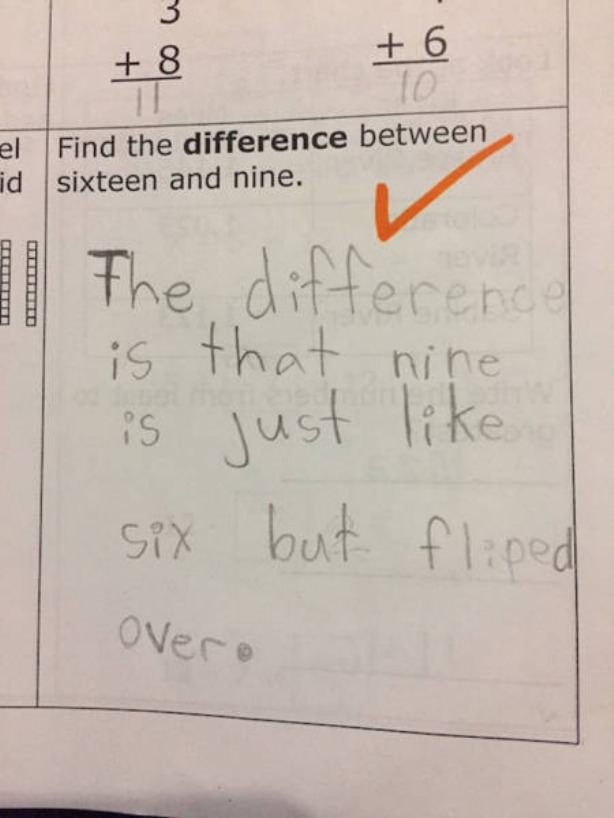 3
+ 8
11
+ 6
10
el
id
Find the difference between
sixteen and nine.
The difference
is that nine
is just like
six but fliped
over.